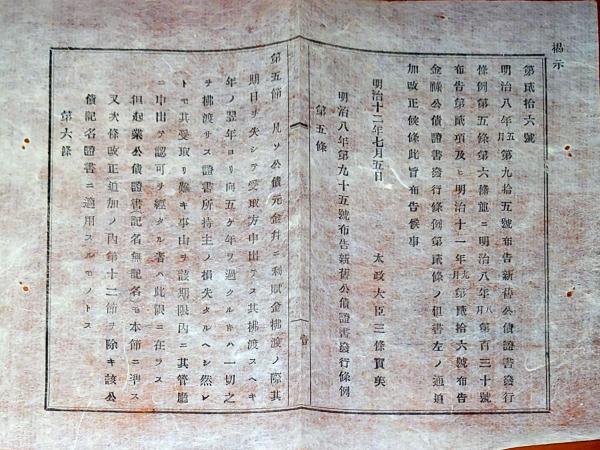 揭示
第貳拾六號
明治八年五月第九拾五號布告新舊公債證書發行
條例第五條第六條並ニ明治八年八月第百三十號
布告第貳項及ヒ明治十一年九月第貳拾六號布告
金祿公債證書發行條例第貳條ノ但書左ノ通追
加改正候條此旨布告候事
明治十二年七月五日
太政大臣三條實美
明治八年第九十五號布告新舊公債證書發行條例
第五條
第五節 凡ソ公債元金幷ニ利賦金拂渡ノ際其
期日ヲ失シテ受取方申出テス其拂渡スヘキ
年ノ翌年ヨリ向五ケ年ヲ過クル時ハ一切之
ヲ拂渡サス證書所持主ノ損失タルヘシ然レ
トモ其受取リ難キ事由ヲ該期限內ニ其管廳
ニ申出テ認可ヲ經タル者ハ此限ニ在ラス
但起業公債證書記名無記名モ本節ニ準ス
又次條改正追加ノ內第十二節ヲ除キ該公
債記名證書ニ適用スルモノトス
第六條